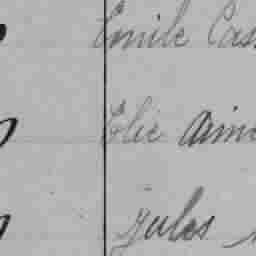 Emile Cas
Elie Aimé
Jules